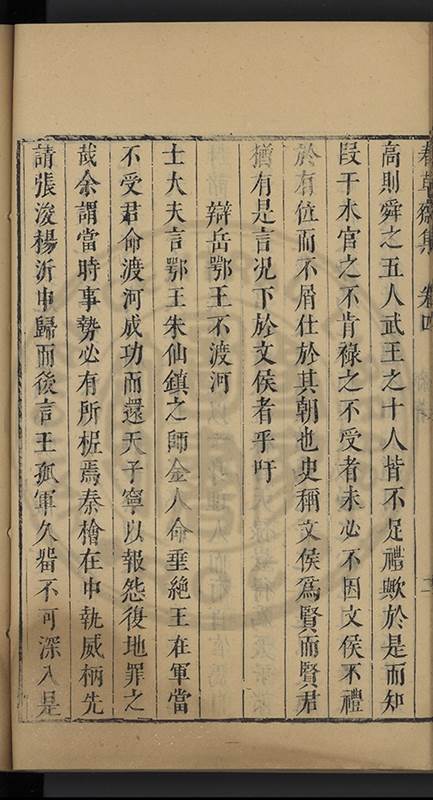 春草齋集 卷四
高則舜之五人武王之十人皆不足禮歟於是而知
段干木官之不肯祿之不受者未必不因文侯不禮
於有位而不屑仕於其朝也史稱文侯爲賢而賢君
猶有是言况下於文侯者乎吁
辯岳鄂王不渡河
士大夫言鄂王朱仙鎮之師金人命垂絶王在軍當
不受君命渡河成功而還天子寧以報怨復地罪之
哉余謂當時事勢必有所柅焉秦檜在中執威柄先
請張浚楊沂中歸而後言王孤軍久畱不可深入是